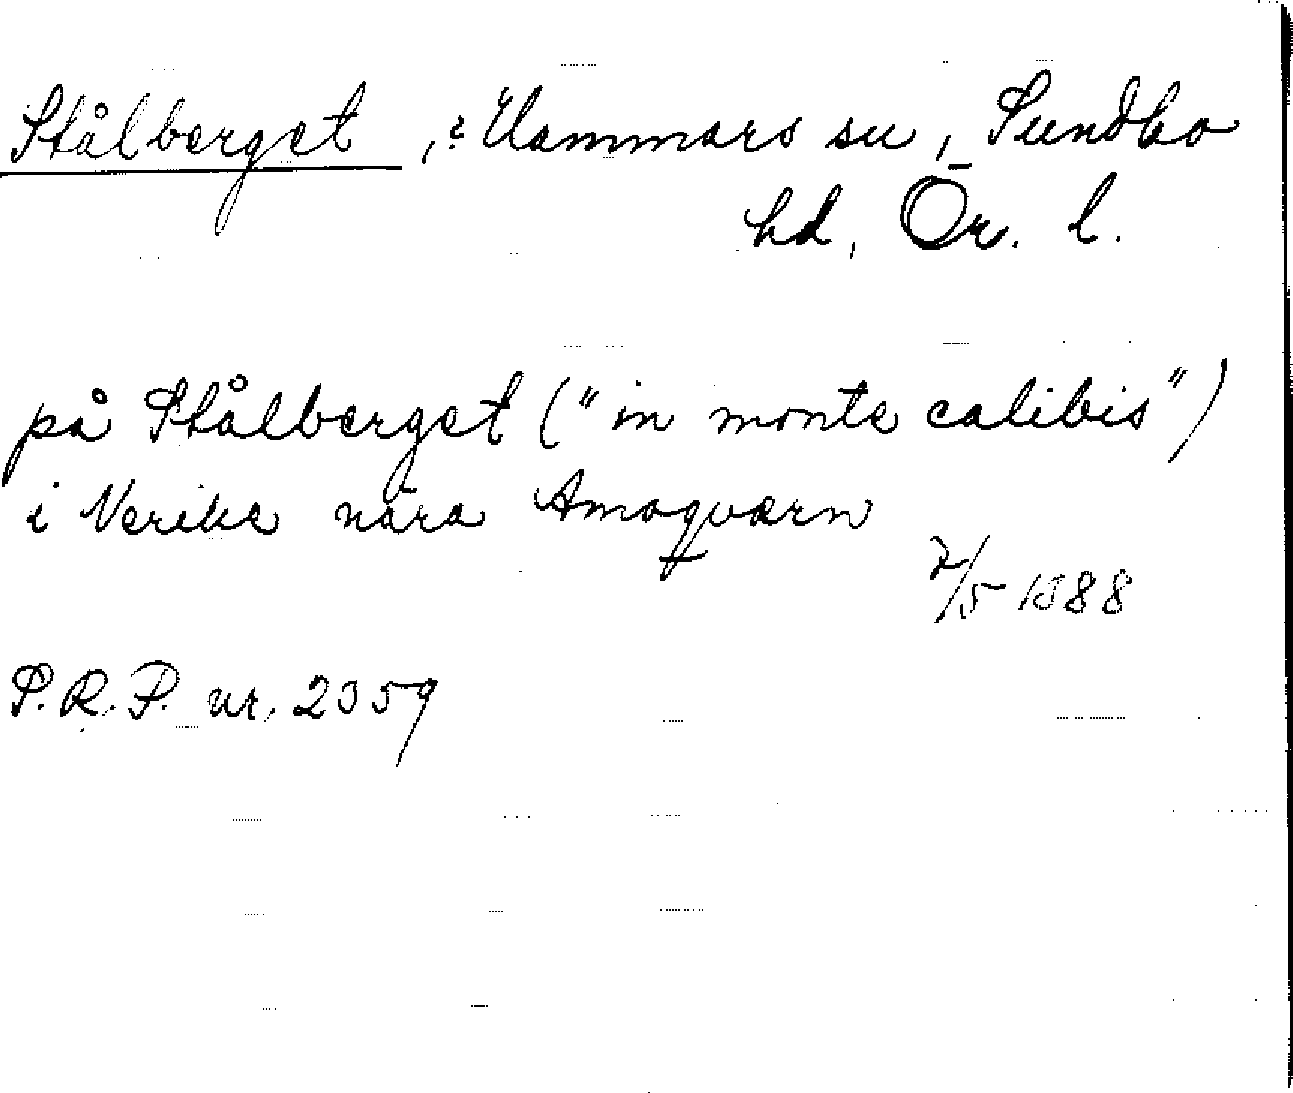 Stålberget, ? Hammars sn, Sundbo
hd, Ör. l.
på Stålberget ("in monte calibis")
i Nerike nära Amaqværn
7/5 1388
P.R.P. nr. 2359